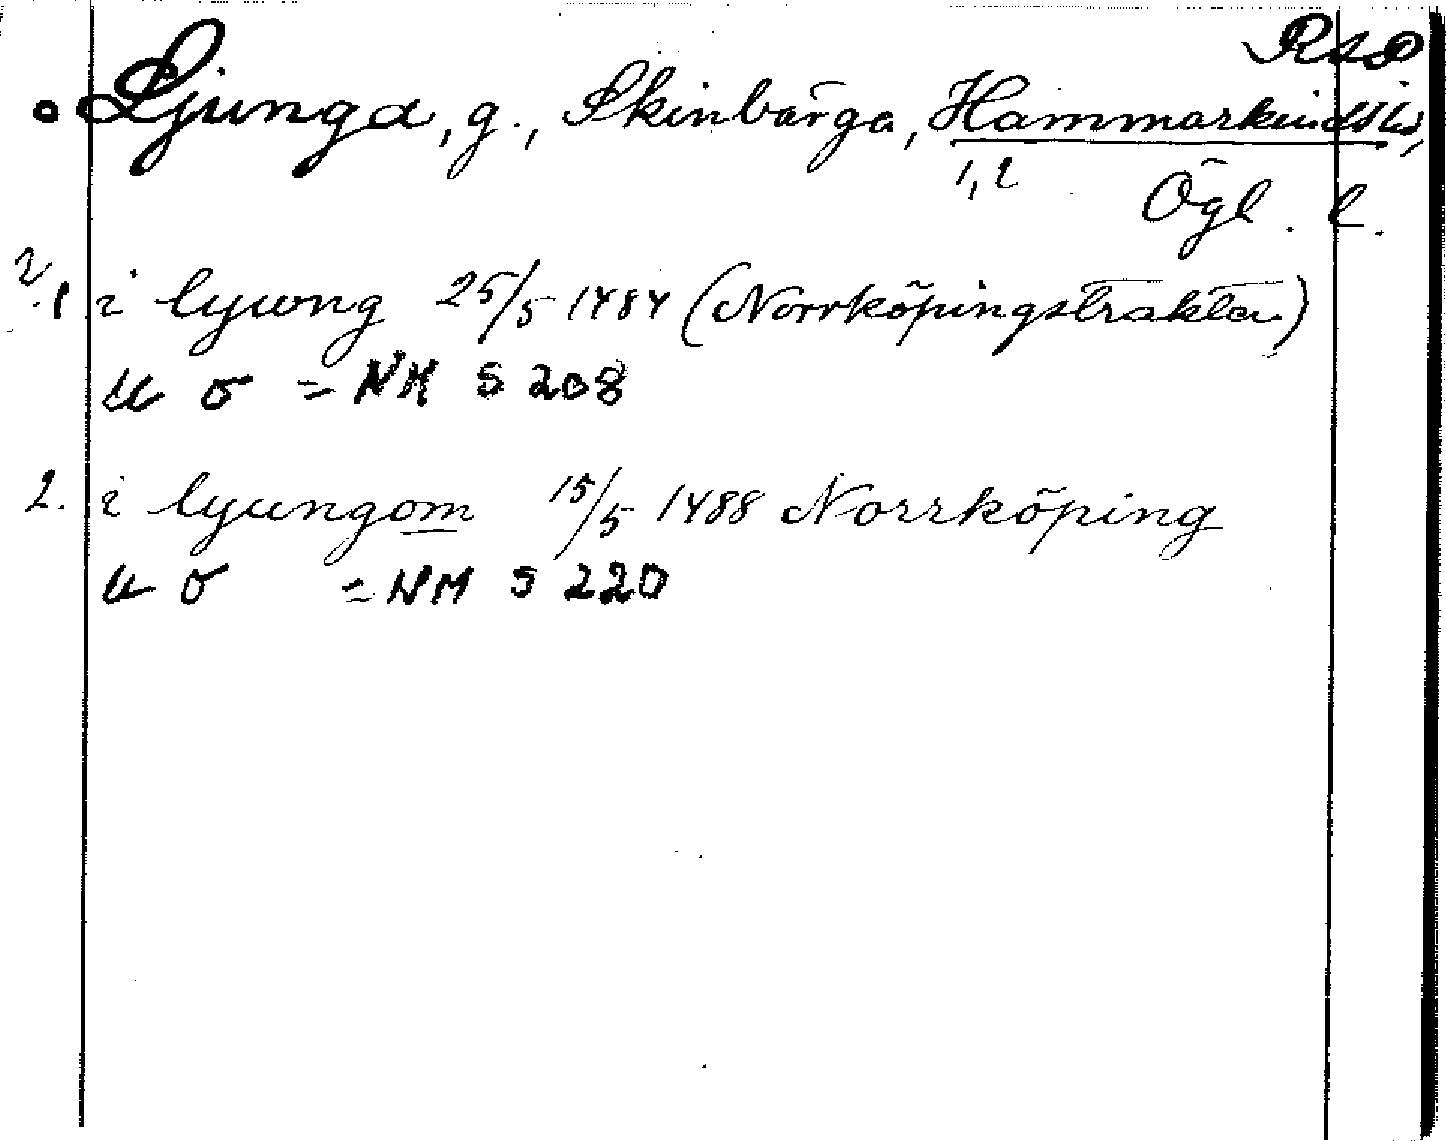 RAP
Ljunga, g., Skinbärga, Hammarkinds hd,
1, 2 Ögl. l.
1 i lyung 25/5 1484 (Norrköpingstrakten)
u o = NM s 208
2. i lyungom 15/5 1488 Norrköping
u o = NM s 220